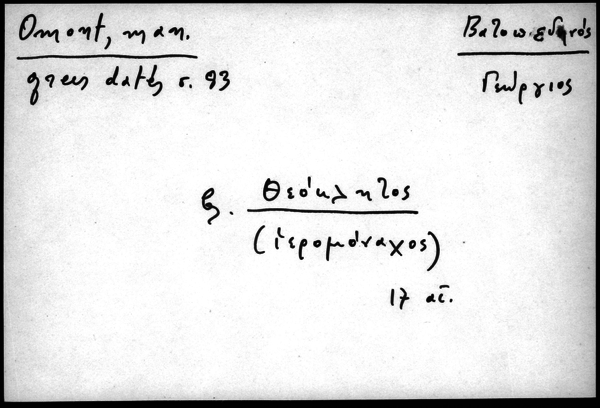 Omont, man.
grecs datés σ. 93
Βατοπεδηνός
Γεώργιος
β. Θεόκλητος
(ἱερομόναχος)
17 αἰ.